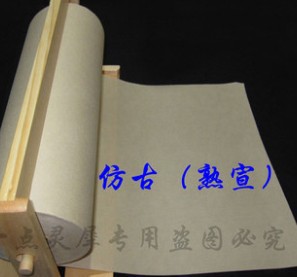 仿古（熟宣）
一点灵犀专用盗图必究